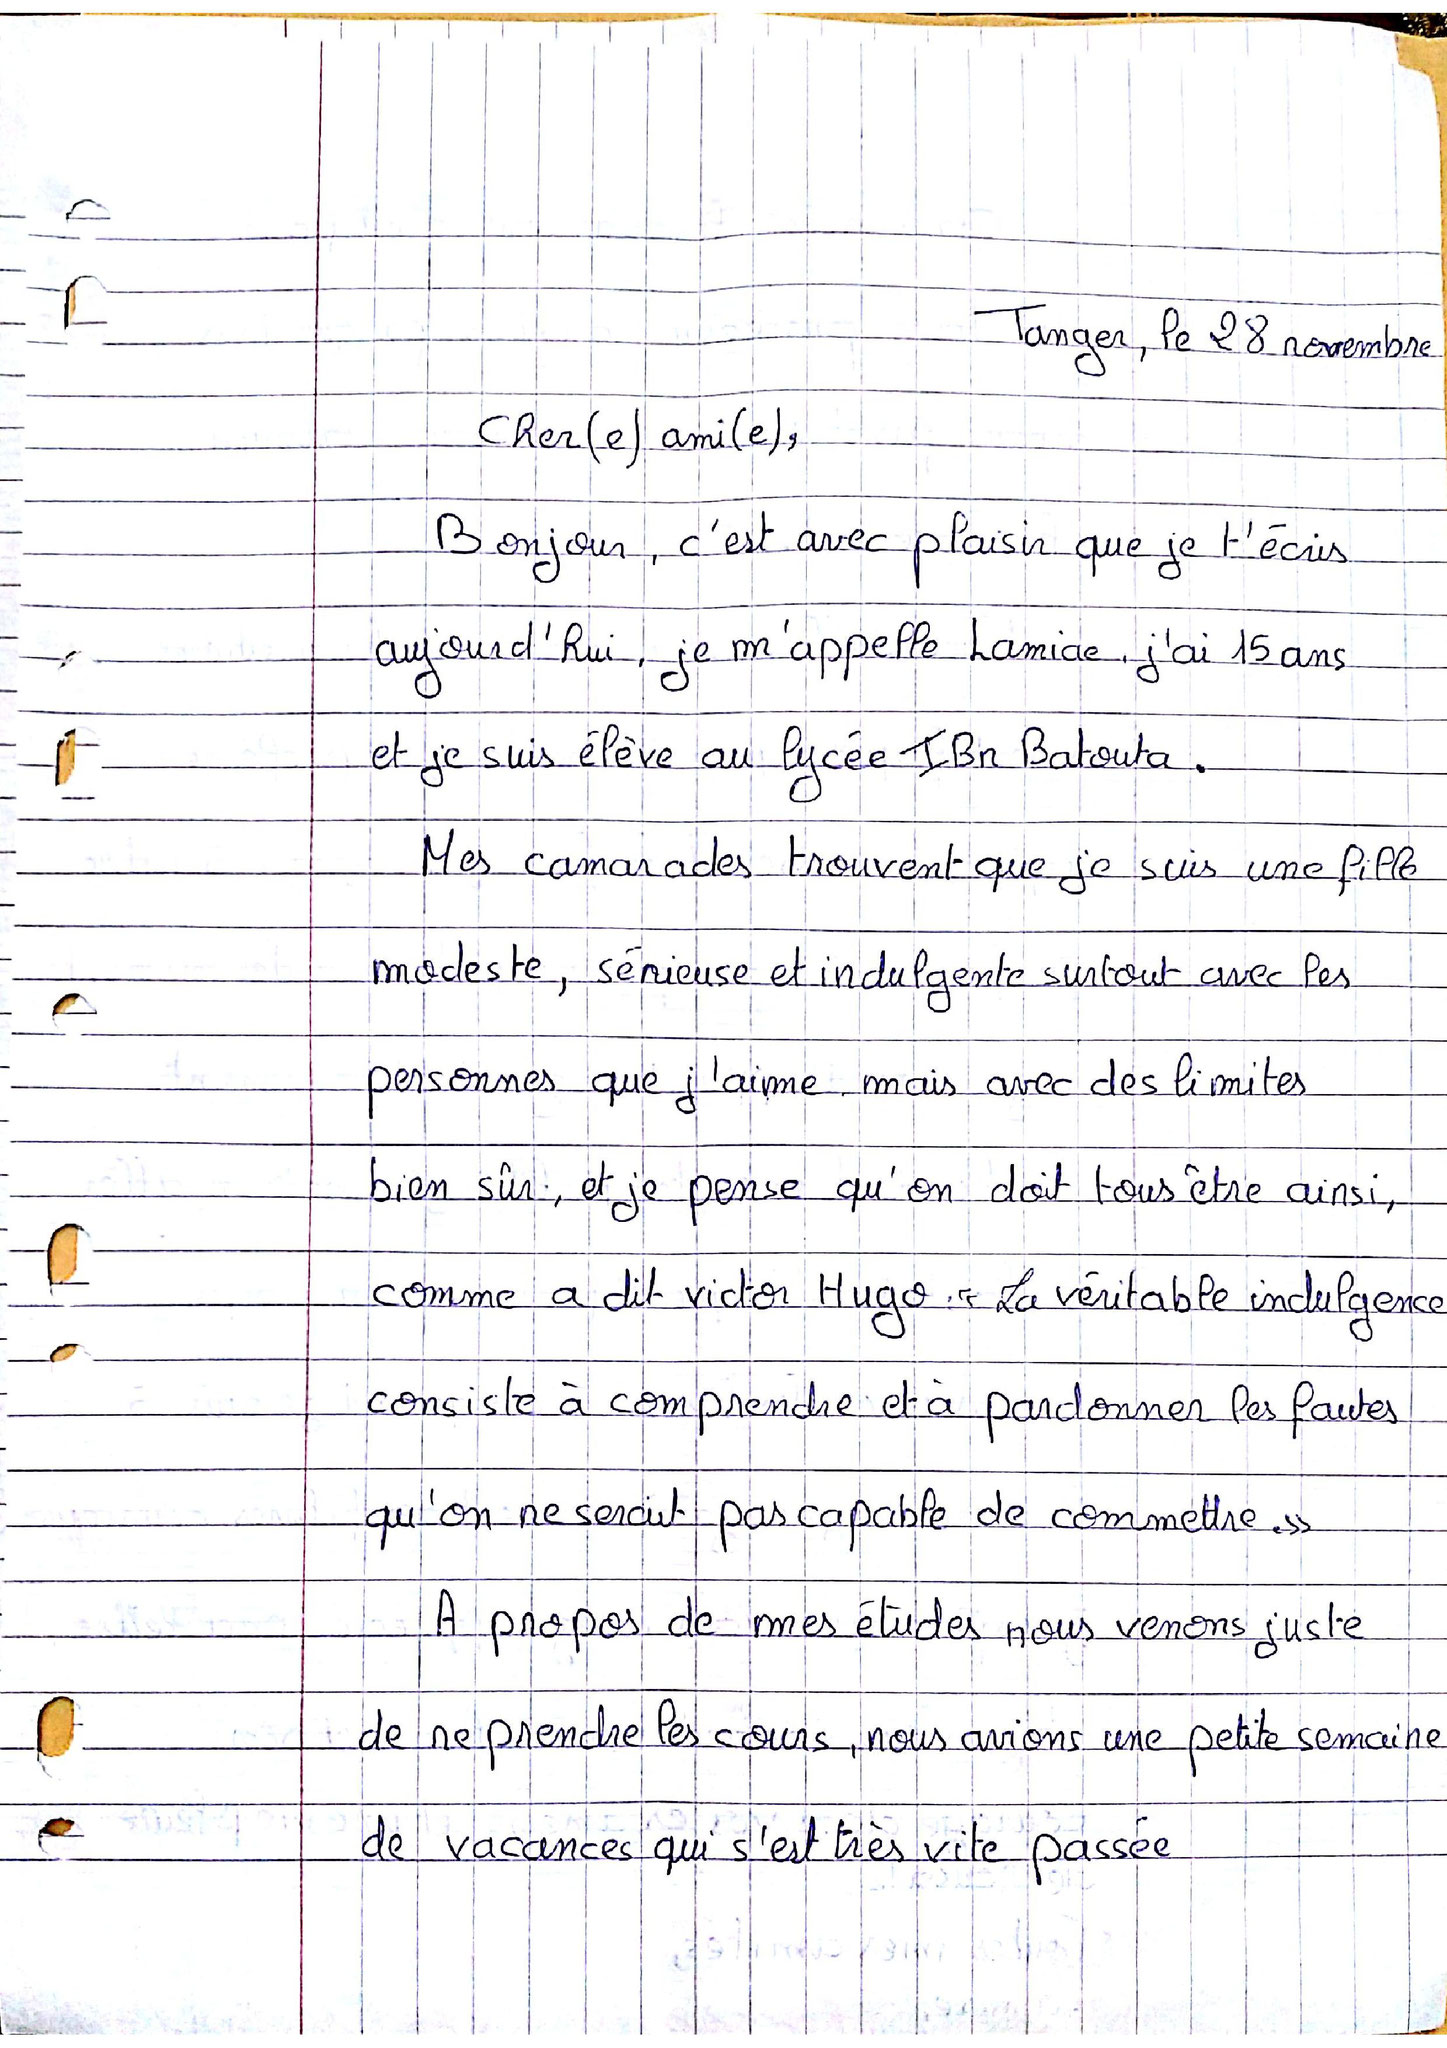 Tanger, le 28 novembre
Cher(e) ami(e),
Bonjour, c'est avec plaisir que je t'écris
aujourd'hui, je m'appelle Lamiae, j'ai 15 ans
et je suis élève au lycée IBn Batouta.
Mes camarades trouvent que je suis une fille
modeste, sérieuse et indulgente surtout avec les
personnes que j'aime, mais avec des limites
bien sûr, et je pense qu'on doit tous être ainsi,
comme a dit victor Hugo. « La véritable indulgence
consiste à comprendre et à pardonner les fautes
qu'on ne serait pas capable de commettre.»
A propos de mes études nous venons juste
de reprendre les cours, nous avions une petite semaine
de vacances qui s'est très vite passée